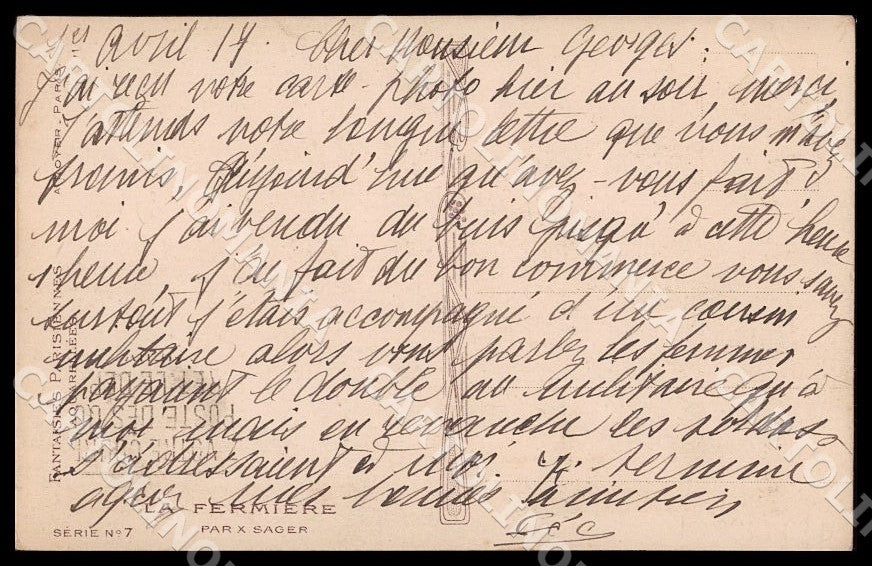 1er Avril 17. Cher Monsieur Georges.
J'ai reçu votre carte-photo hier au soir, merci
j'attends votre longue lettre que vous m'avez
promis, Aujourd'hui qu'avez-vous fait
moi j'ai vendu du buis jusqu'à cette heure
1 heure, j'ai fait du bon commerce vous savez
surtout j'étais accompagné d'un cousin
militaire alors vous parlez les femmes
payaient le double au militaire qu'à
moi mais en revanche les soldats
s'adressaient à moi. Je termine
agréez mes bonnes amitiés
LA FERMIÈRE
PAR X SAGER
SÉRIE No 7
FANTAISIES PARISIENNES
A. NOYER, PARIS
POSTE DES
CARTOLINOMANIA